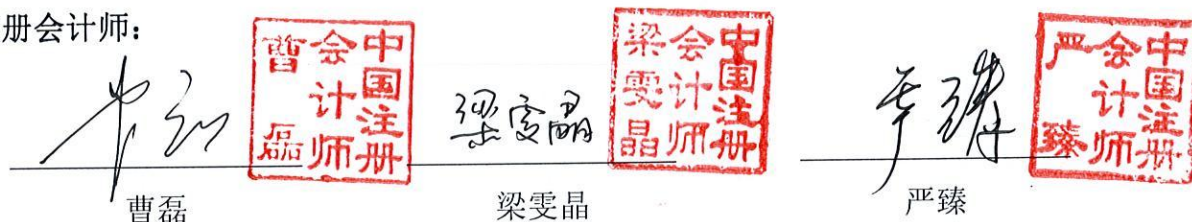 册会计师:
中国注册会计师曹磊
梁雯晶
中国注册会计师梁雯晶
严臻
中国注册会计师严臻
曹磊
梁雯晶
严臻